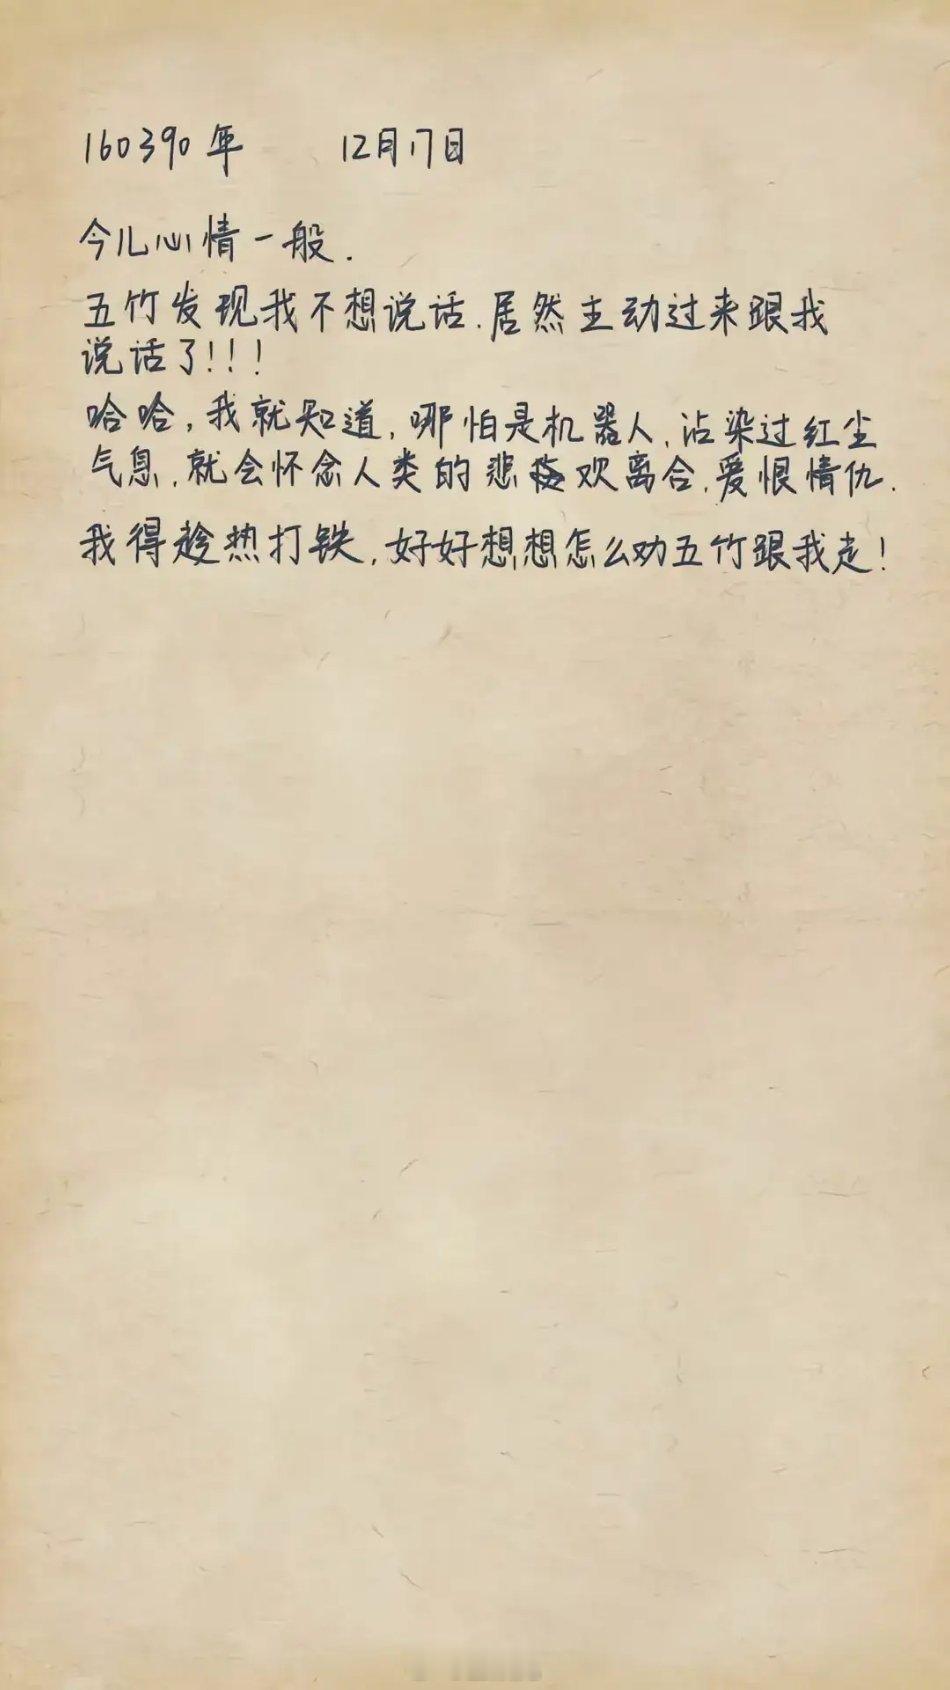 160390年 12月17日
今儿心情一般.
五竹发现我不想说话.居然主动过来跟我
说话了!!!
哈哈,我就知道,哪怕是机器人,沾染过红尘
气息,就会怀念人类的悲欢离合,爱恨情仇.
我得趁热打铁,好好想想怎么劝五竹跟我走!